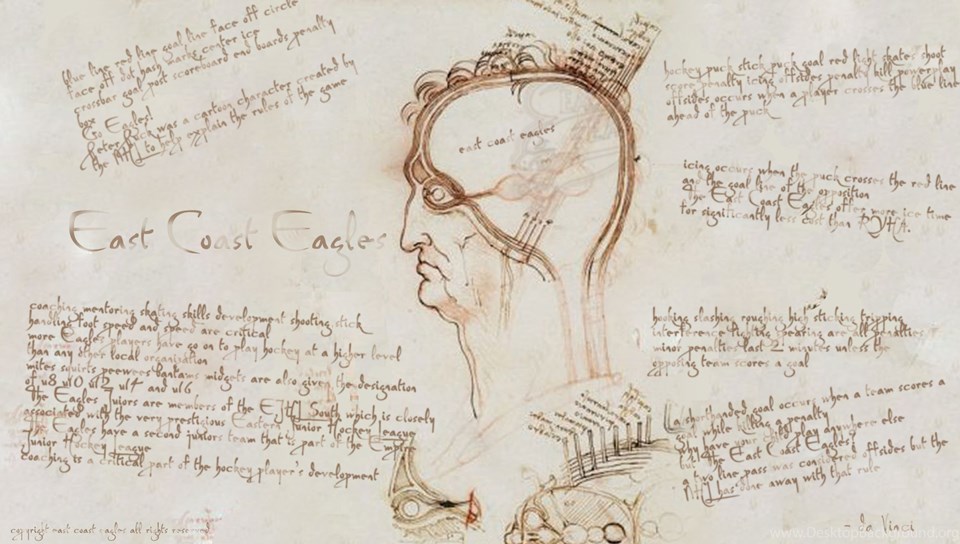 blue line red line goal line face off circle
face off dot hash marks center ice
crossbar goal post scoreboard end boards penalty
box
Go Eagles!
Peter Puck was a cartoon character created by
the NHL to help explain the rules of the game
east coast eagles
hockey puck stick puck goal red light skates shoot
score penalty icing offsides penalty kill powerplay
offsides occurs when a player crosses the blue line
ahead of the puck
icing occurs when the puck crosses the red line
and the goal line of the opposition
The East Coast Eagles offer more ice time
for significantly less cost than RYHA.
East Coast Eagles
coaching mentoring skating skills development shooting stick
handling foot speed and speed are critical
more Eagles players have go on to play hockey at a higher level
than any other local organization
mites squirts peewees bantams midgets are also given the designation
of u8 u10 u12 u14 and u16
The Eagles Juiors are members of the EJHL South which is closely
associated with the very prestigious Eastern Junior Hockey League
The Eagles have a second juniors team that is part of the Empire
Junior Hockey League
coaching is a critical part of the hockey player's development
hooking slashing roughing high sticking tripping
interference fighting spearing are all penalties
minor penalties last 2 minutes unless the
opposing team scores a goal
a shorthanded goal occurs when a team scores a
goal while killing a penalty
why have your child play anywhere else
but the East Coast Eagles?
a two line pass was considered offsides but the
NHL has done away with that rule
- da Vinci
copyright east coast eagles all rights reserved
www.DesktopBackground.org